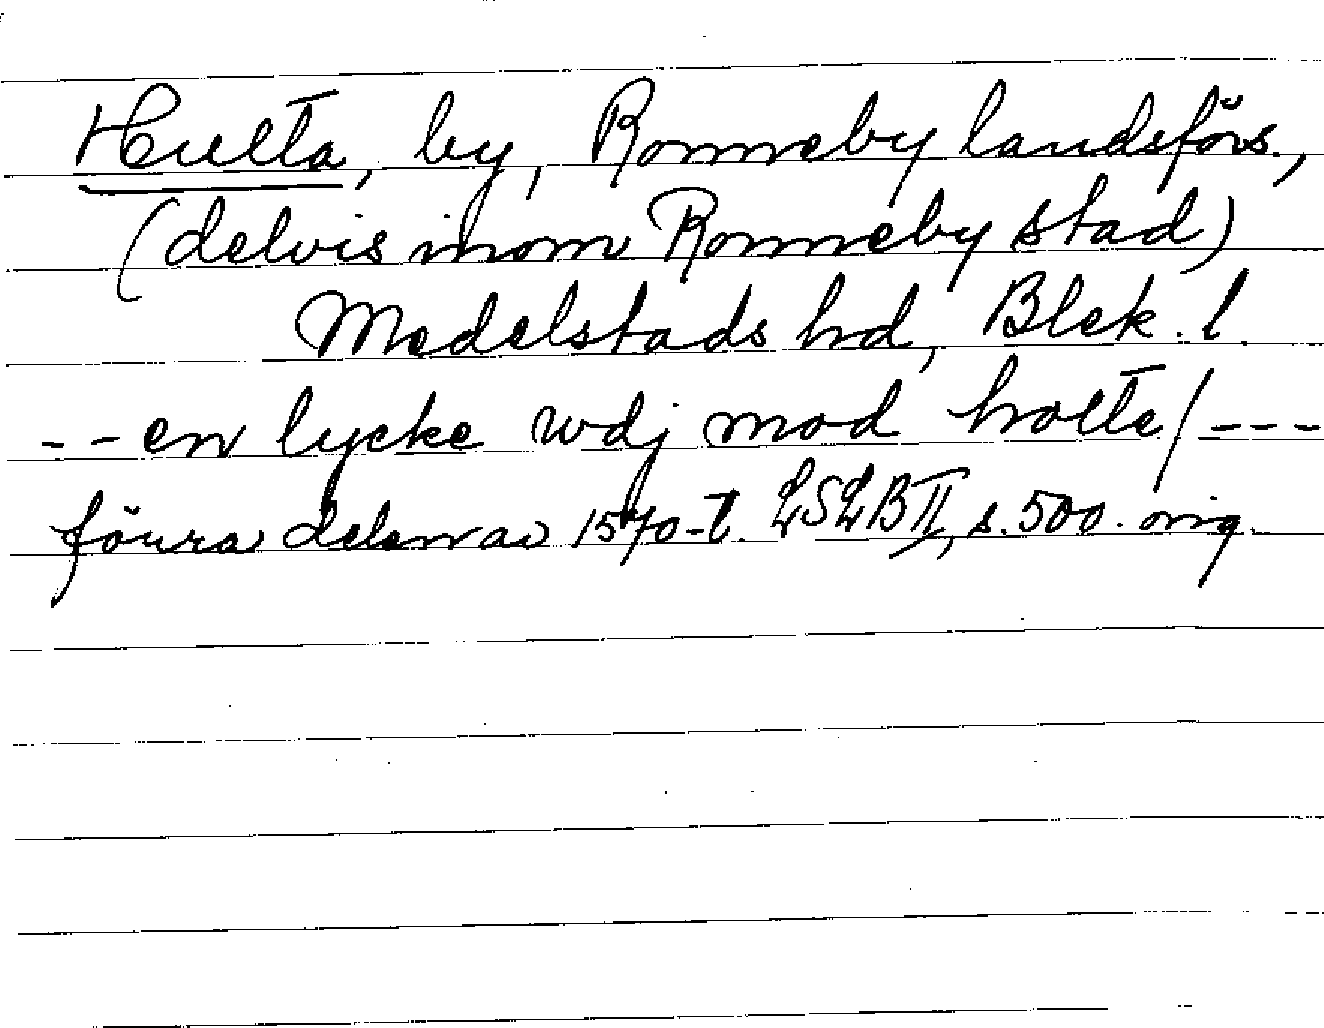 Hulta, by, Ronneby landsförs.,
(delvis inom Ronneby stad)
Medelstads hd, Blek. l.
-- en lycke wdj mod holte/ ---
förra delen av 1570-t. LSLB II, s. 500. orig.